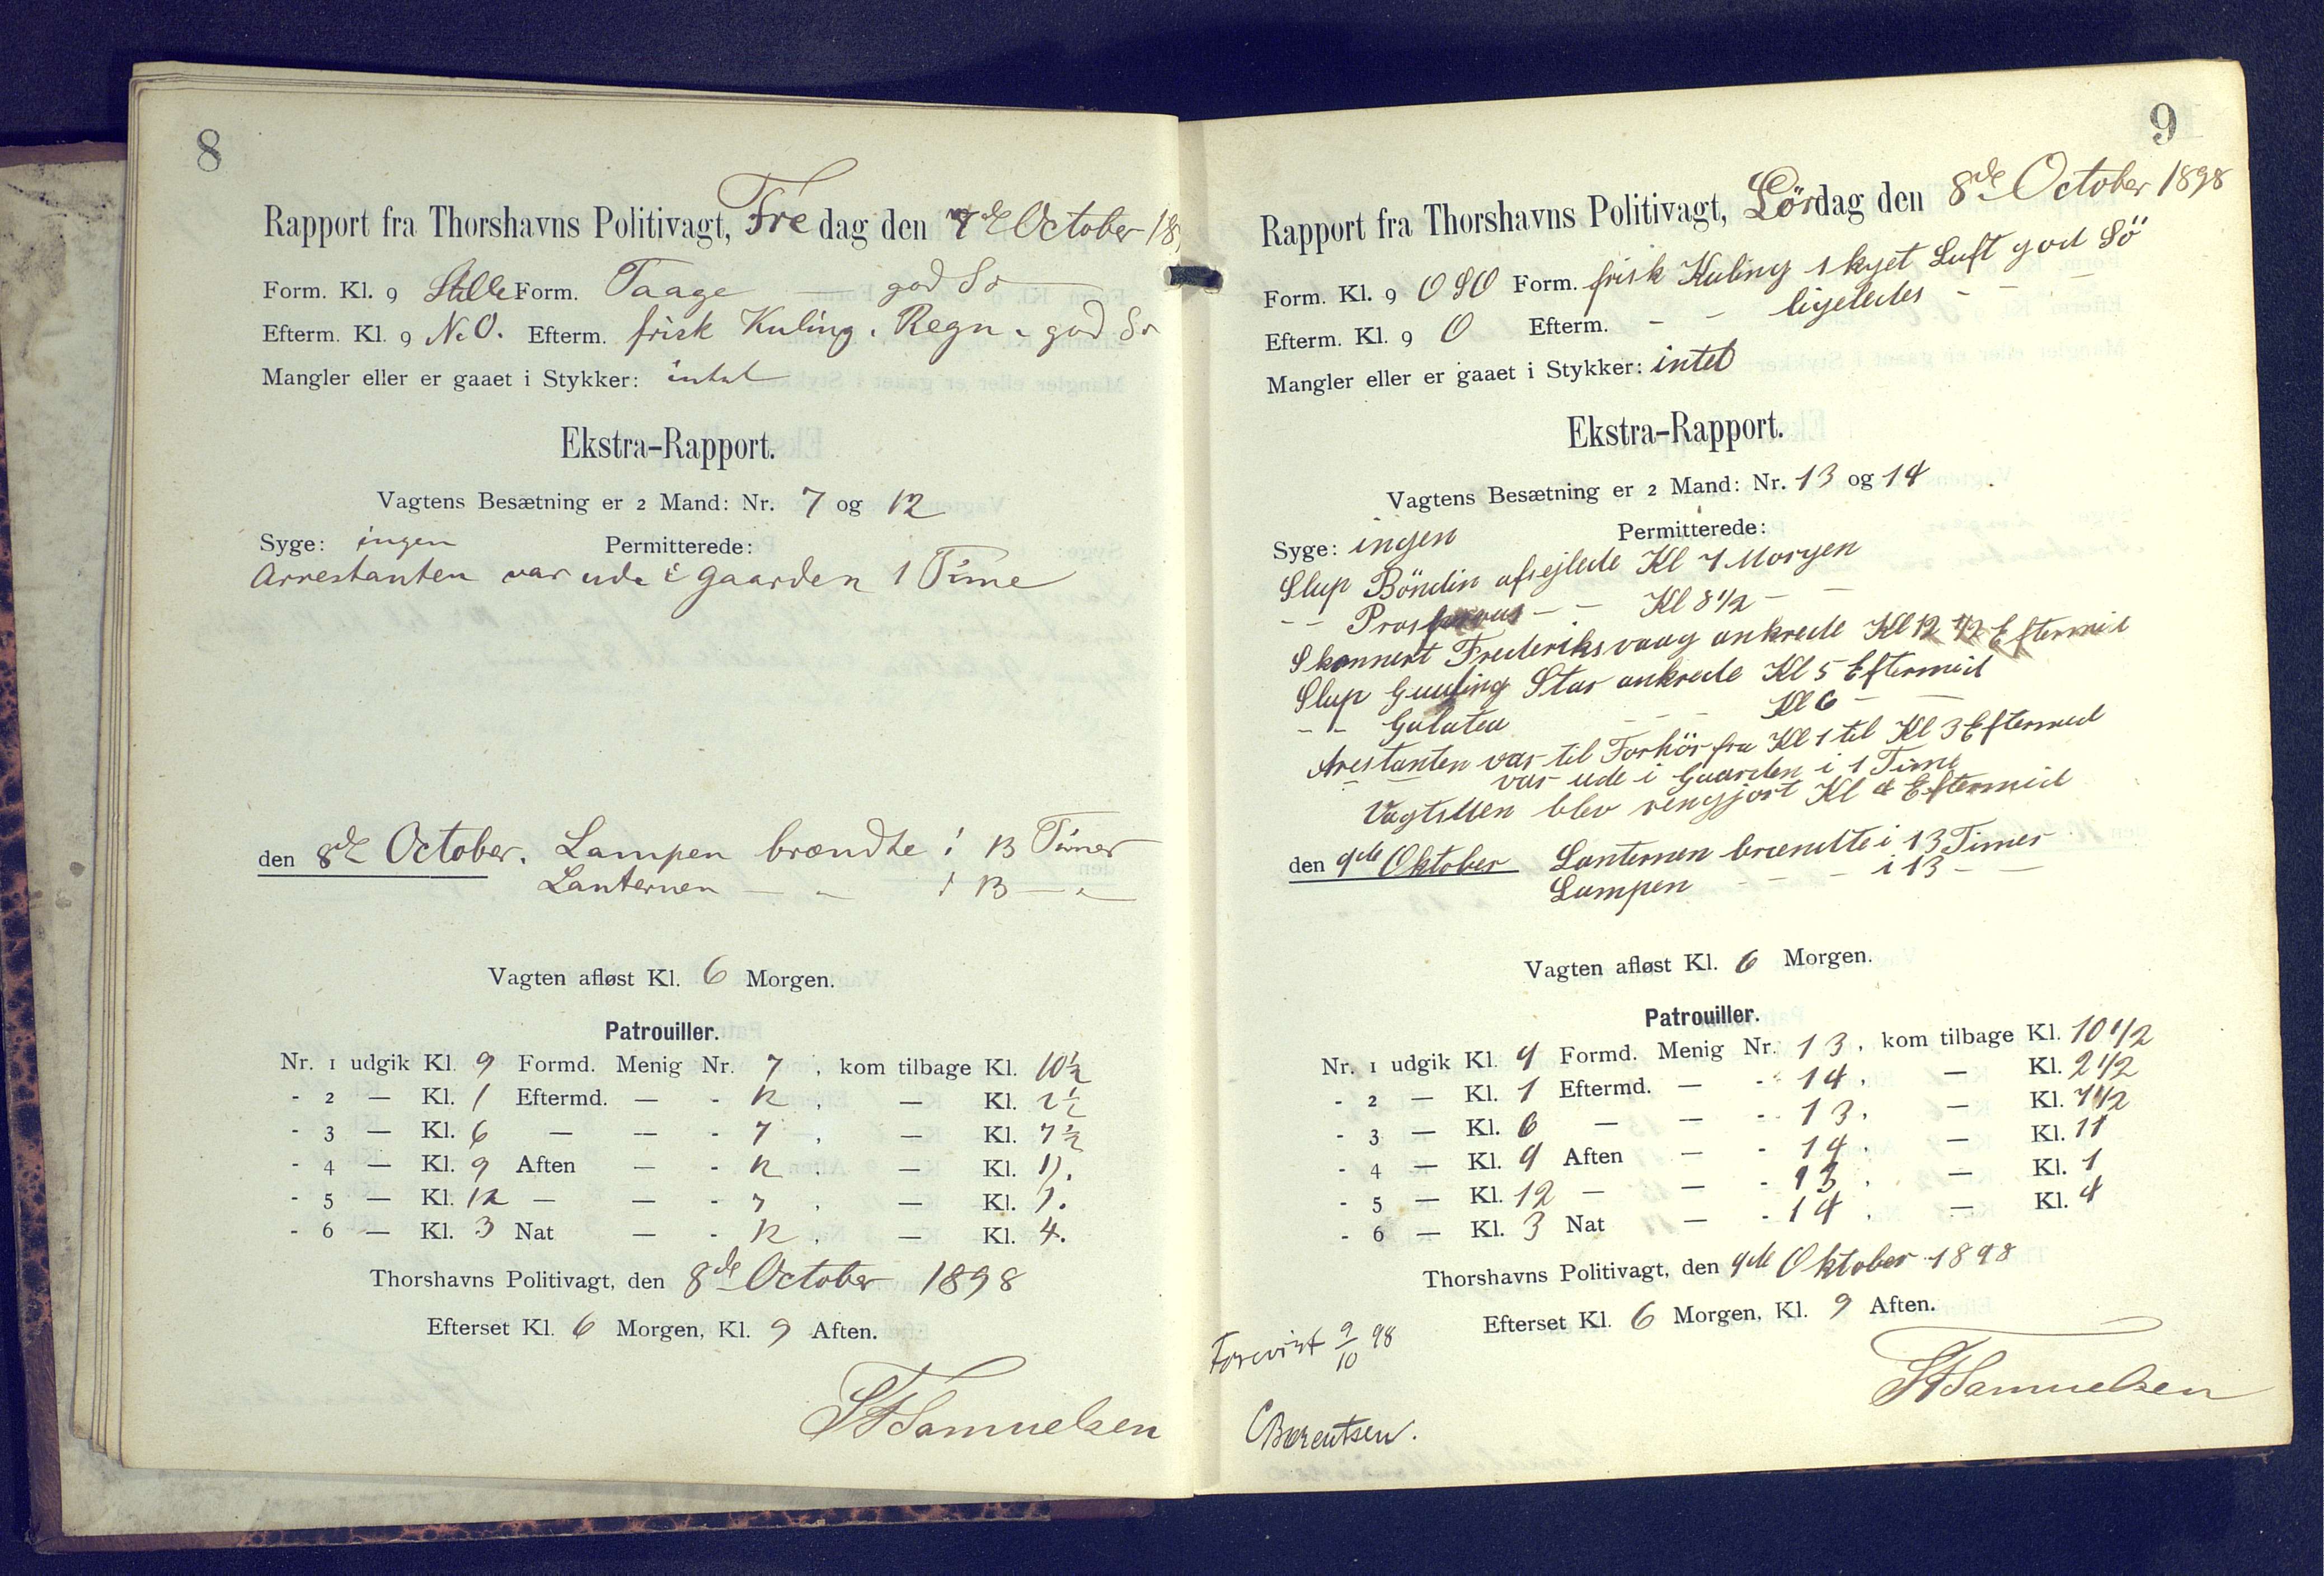 8
Rapport fra Thorshavns Politivagt, Fredag den 7de October 18
Form. Kl. 9 Stille Form. Taage — god Sø —
Efterm. Kl. 9 N.O. Efterm. frisk Kuling. Regn. god Sø
Mangler eller er gaaet i Stykker: intet
Ekstra-Rapport.
Vagtens Besætning er 2 Mand: Nr. 7 og 12
Syge: ingen Permitterede:
Arrestanten var ude i Gaarden 1 Time
den 8de October. Lampen brændte i 13 Timer
Lanternen — " i 13 — "
Vagten afløst Kl. 6 Morgen.
Patrouiller.
Nr. 1 udgik Kl. 9 Formd. Menig Nr. 7, kom tilbage Kl. 10½
- 2 — Kl. 1 Eftermd. — - 12, — Kl. 2½
- 3 — Kl. 6 — — - 7, — Kl. 7½
- 4 — Kl. 9 Aften — - 12, — Kl. 11.
- 5 — Kl. 12 — — - 7, — Kl. 1.
- 6 — Kl. 3 Nat — - 12, — Kl. 4.
Thorshavns Politivagt, den 8de October 1898
Efterset Kl. 6 Morgen, Kl. 9 Aften.
SFSamuelsen
9
Rapport fra Thorshavns Politivagt, Lördag den 8de October 1898
Form. Kl. 9 OSO Form. frisk Kuling skyet Luft god Sö
Efterm. Kl. 9 O Efterm. - - ligeledes - -
Mangler eller er gaaet i Stykker: intet
Ekstra-Rapport.
Vagtens Besætning er 2 Mand: Nr. 13 og 14
Syge: ingen Permitterede:
Slup Böndin afsejlede Kl 7 Morgen
- - Prosperous - - Kl 8 1/2 - -
Skonnert Frederiksvaag ankrede Kl 12 1/2 Eftermid
Slup Guiding Star ankrede Kl 5 Eftermid
- - Galatea - - - Kl 6 - -
Arestanten var til Forhör fra Kl 1 til Kl 3 Eftermid
- - var ude i Gaarden i 1 Time
Vagtstuen blev rengjort Kl 2 Eftermid
den 9de Oktober Lanternen brændte i 13 Timer
Lampen - - - i 13 - -
Vagten afløst Kl. 6 Morgen.
Patrouiller.
Nr. 1 udgik Kl. 9 Formd. Menig Nr. 13, kom tilbage Kl. 10 1/2
- 2 — Kl. 1 Eftermd. — - 14, — Kl. 2 1/2
- 3 — Kl. 6 — — - 13, — Kl. 7 1/2
- 4 — Kl. 9 Aften — - 14, — Kl. 11
- 5 — Kl. 12 — — - 13, — Kl. 1
- 6 — Kl. 3 Nat — - 14, — Kl. 4
Thorshavns Politivagt, den 9de Oktober 1898
Efterset Kl. 6 Morgen, Kl. 9 Aften.
Forevist 9/10 98
SFSamuelsen
CBærentsen.